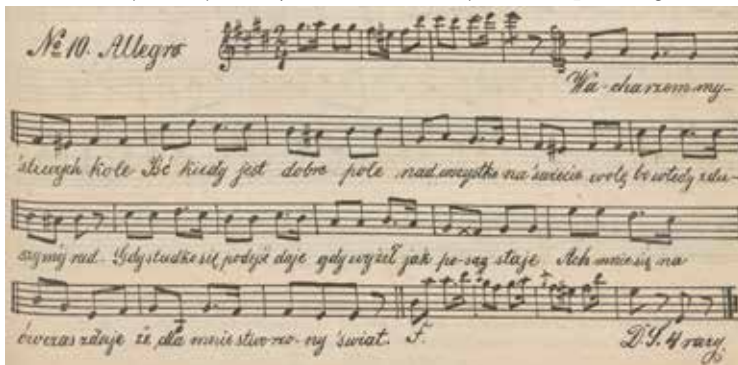 № 10. Allegro
my-
śliwych kole Bo kiedy jest dobre pole nad wszystko na świecie wolę bo wtedy z du-
szy mój rad. Gdy stadko się podejść daje gdy wyżeł jak po-sąg staje Ach mnie się na
ówczas zdaje że dla mnie stworzo-ny świat. F. D.S. 4 razy